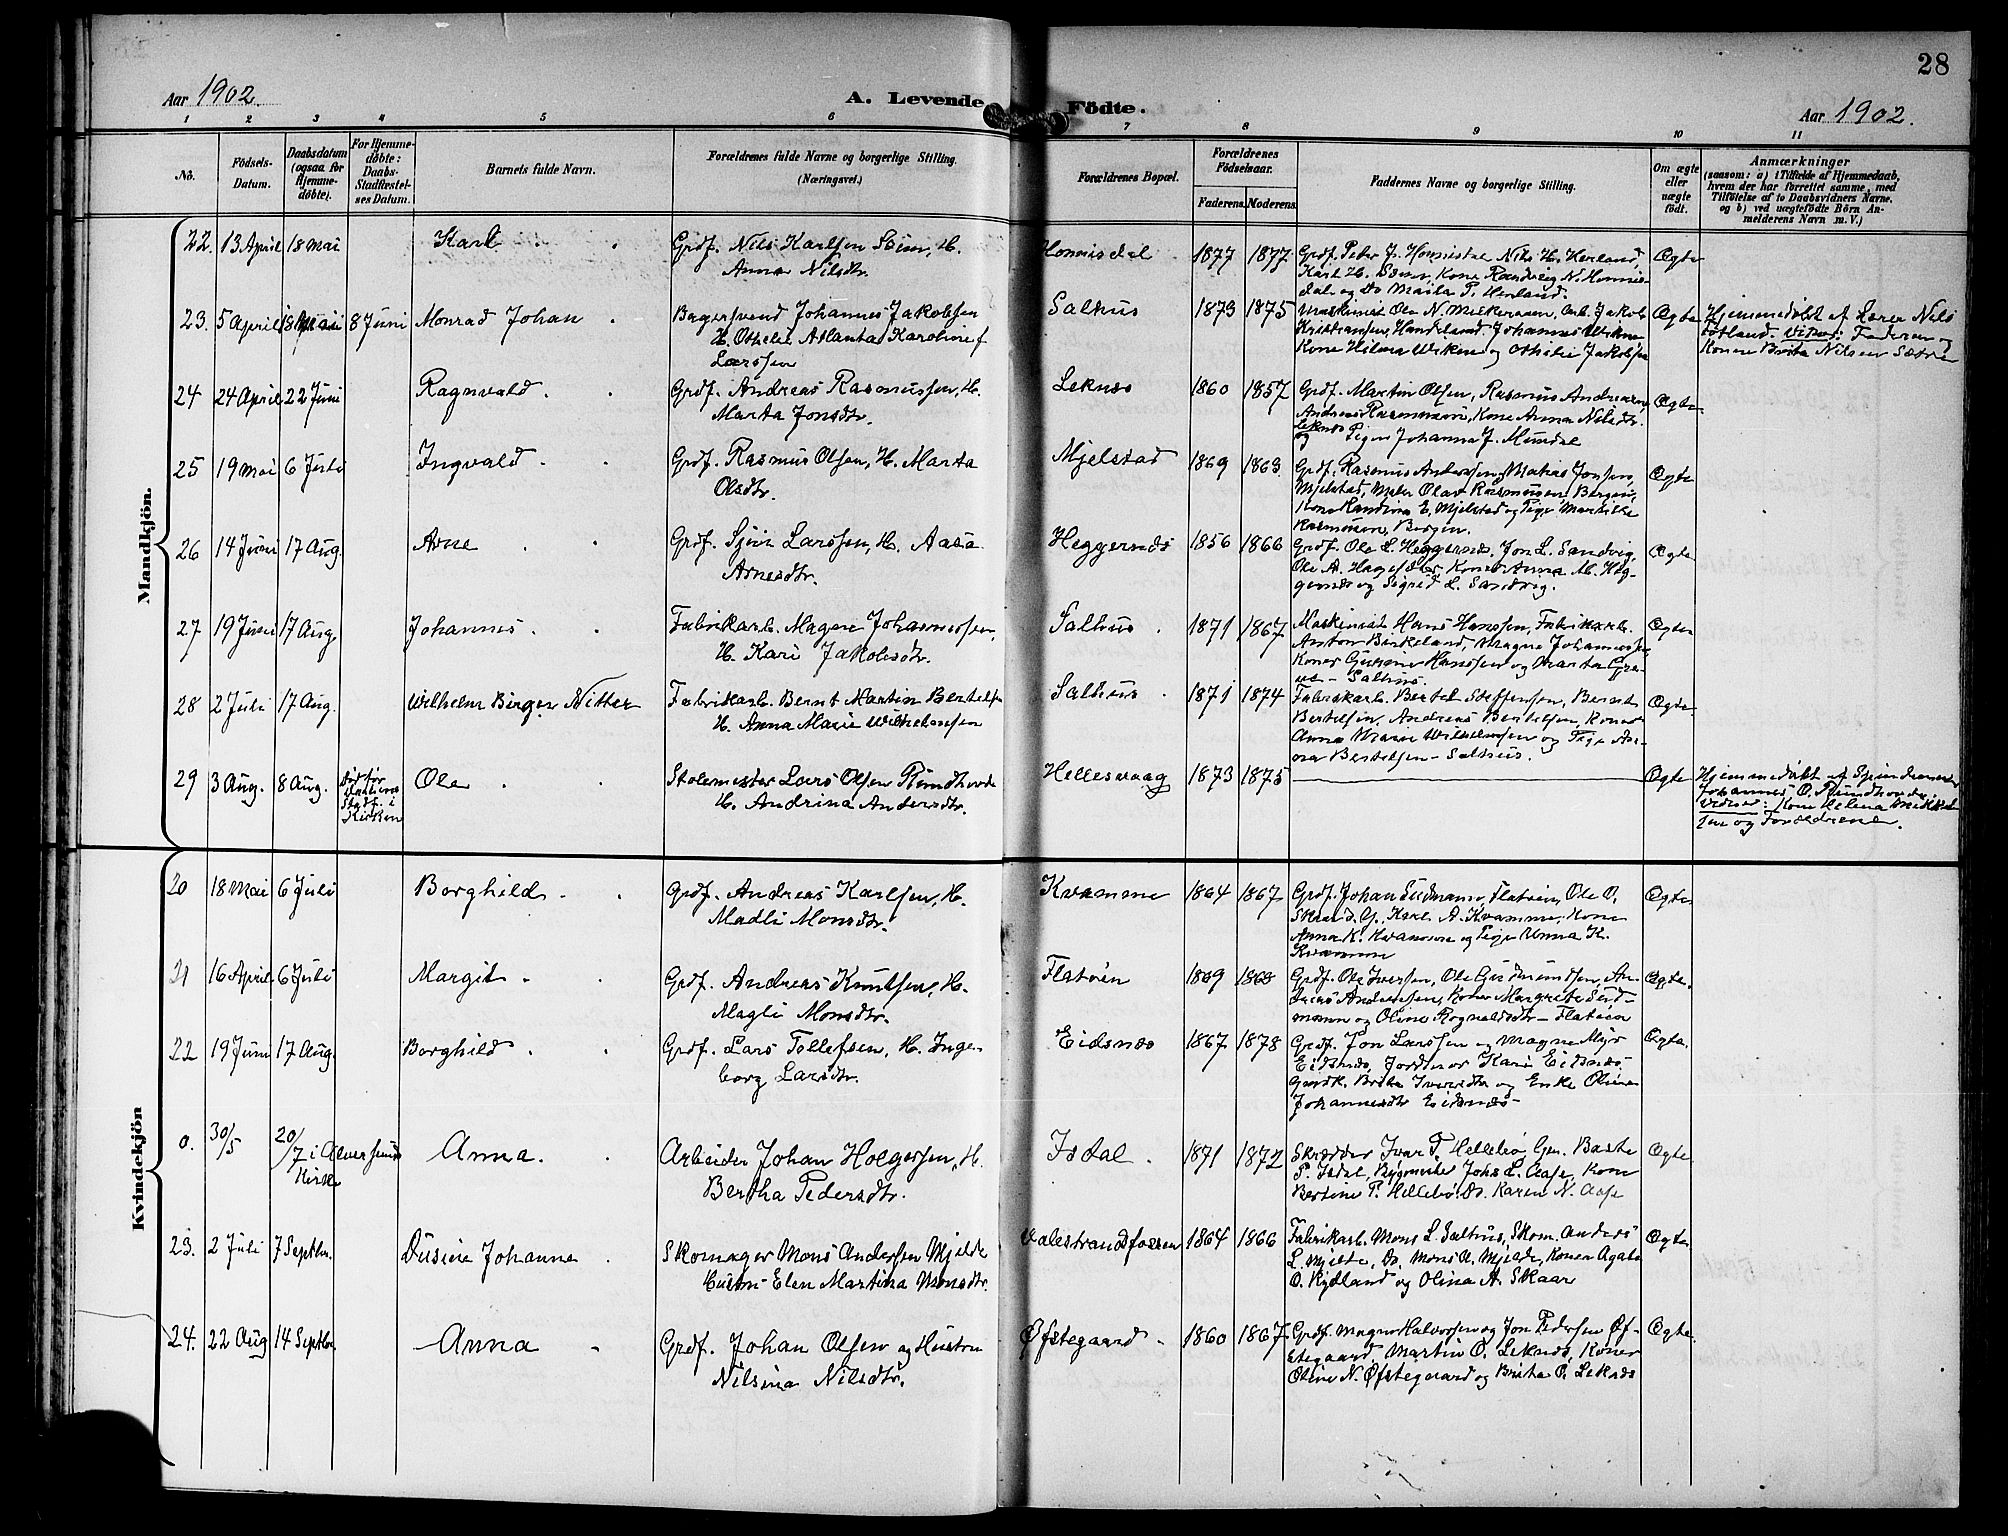 28
Aar 1902.
A. Levende Födte.
Aar 1902.
1 2 3 4 5 6 7 8 9 10 11
No.
Födsels-Datum.
Daabsdatum (ogsaa for Hjemme-döbte).
For Hjemme-döbte: Daabs-Stadfæstel-ses Datum.
Barnets fulde Navn.
Forældrenes fulde Navne og borgerlige Stilling. (Næringsvei.)
Forældrenes Bopæl.
Forældrenes Födselsaar.
Faderens. Moderens.
Faddernes Navne og borgerlige Stilling.
Om ægte eller uægte födt.
Anmærkninger
(saasom: a) i Tilfælde af Hjemmedaab, hvem der har forrettet samme, med Tilföielse af to Daabsvidners Navne, og b) ved uægtefödte Börn An-melderens Navn m. V.)
Mandkjön.
22. 13 April 18 Mai Karl Grdf. Nils Karlsen H. Honnisdal 1877 1877 Grdf. Peder J. Nils H. Herland, Ægte
Anna Nilsdtr. Karl H. Kone N. Honnis-
dal og Do P. Herland.
23. 5 April 18 Mai 8 Juni Monrad Johan Bagersvend Johannes Jakobsen Salhus 1873 1875 Maskinist Ole N. Arb. Jakob Ægte Hjemmedøbt af Lærer Nils
H. Othelie Atlanta Karoline f Kristiansen, Johannes Faderen og
Larssen Kone Hilma og Othilie Jakobsen Konen Brita Nilsen
24 24 April 22 Juni Ragnvald Grdf. Andreas Rasmussen, H. Leknæs 1860 1857 Grdf. Martin Olsen, Rasmus Andreasen, Ægte
Marta Jonsdtr. Andreas Rasmussen, Kone Anna Nilsdtr.
Leknæs og Pigen Johanna J. Mundal
25 19 Mai 6 Juli Ingvald Grdf. Rasmus Olsen, H. Marta Mjelstad 1869 1863 Grdf. Rasmus Andersen, Matias Jonsen, Ægte
Olsdtr. Mjelstad, Maler Olav Rasmussen Bergen,
Kone E. Mjelstad og Pige
Rasmussen, Bergen.
26 14 Juni 17 Aug. Arne Grdf. Sjur Larssen, H. Aasa Heggernæs 1856 1866 Grdf. Ole L. Heggernæs, Jon L. Sandvig, Ægte
Arnesdtr. Ole A. Koner Anna M. Heg-
gernæs og Sigrid L. Sandvig.
27 19 Juni 17 Aug. Johannes Fabrikarb. Magne Johannessen, Salhus 1871 1867 Maskinist Hans Hanssen, Fabrikarb. Ægte
H. Kari Jakobsdtr. Anton Birkeland, Magne Johannessen
Koner Hanssen og Marta
Salhus.
28 2 Juli 17 Aug. Wilhelm Birger Nitter Fabrikarb. Bernt Martin Bertelsen Salhus 1871 1874 Fabrikarb. Bertel Steffensen, Bernt Ægte
H. Anna Marie Wilhelmsen Bertelsen, Andreas Bertelsen, Koner
Anna Marie Wilhelmsen og Pige An-
na Bertelsen - Salhus.
29 3 Aug. 8 Aug. Død før Stadf. i Kirken Ole Stolemester Lars Olsen Rundhovde Hellesvaag 1873 1875 Ægte Hjemmedøbt af
H. Andrina Andersdtr. Johannes O. Rundhovde.
Vidner: Kone Helena
og Forældrene.
Kvindekjön
20 18 Mai 6 Juli Borghild Grdf. Andreas Karlsen, H. Kvamme 1864 1867 Grdf. Johan Flatøen, Ole O. Ægte
Madli Monsdtr. Karl A. Kvamme, Kone
Anna K. Kvamme og Pige Anna K.
Kvamme
21 16 April 6 Juli Margit Grdf. Andreas Knutsen, H. Flatøen 1869 1868 Grdf. Ole Iversen, Ole Gudmundsen, An- Ægte.
Magli Monsdtr. dreas Andersen, Koner Margrete
og Oline Rognaldsdtr - Flatøen
22 19 Juni 17 Aug. Borghild Grdf. Lars Tollefsen, H. Inge- Eidsnæs 1867 1878 Grdf. Jon Larssen og Magne Ægte.
borg Larsdtr. Eidsnæs, Jordmor Kari Eidsnæs
Gaardk. Brita Iversdtr og Enke Oline
Johannesdtr Eidsnæs -
0. 30/5 20/7 i Alversund Kirke Anna. Arbeider Johan Holgersen, H. Isdal 1871 1872 Skrædder Ivar T. Hellebø Gm. Baste Ægte
Bertha Pedersdtr. P. Isdal, Bygmester Johs L. Aase, Kone
Bertine P. Hellebø, Do. Karen N. Aase
23. 2 Juli 7 Septbr. Dusine Johanne Skomager Mons Andersen Mjelde Valestrandsfossen 1864 1866 Fabrikarb. Mons L. Salhus, Skom. Anders Ægte
Hustru Elen Martina Monsdtr. L. Mjelde, Do. Mons A. Mjelde, Koner Agate
O. Rydland og Olina A. Skaar
24. 22 Aug 14 Septbr Anna Grdf. Johan Olsen og Hustru Øfstegaard 1860 1867 Grdf. Magne Halvorsen og Jon Pedersen Øf- Ægte
Nilsina Nilsdtr. stegaard, Martin O. Leknæs, Koner
Oline N. Øfstegaard og Brita O. Leknæs